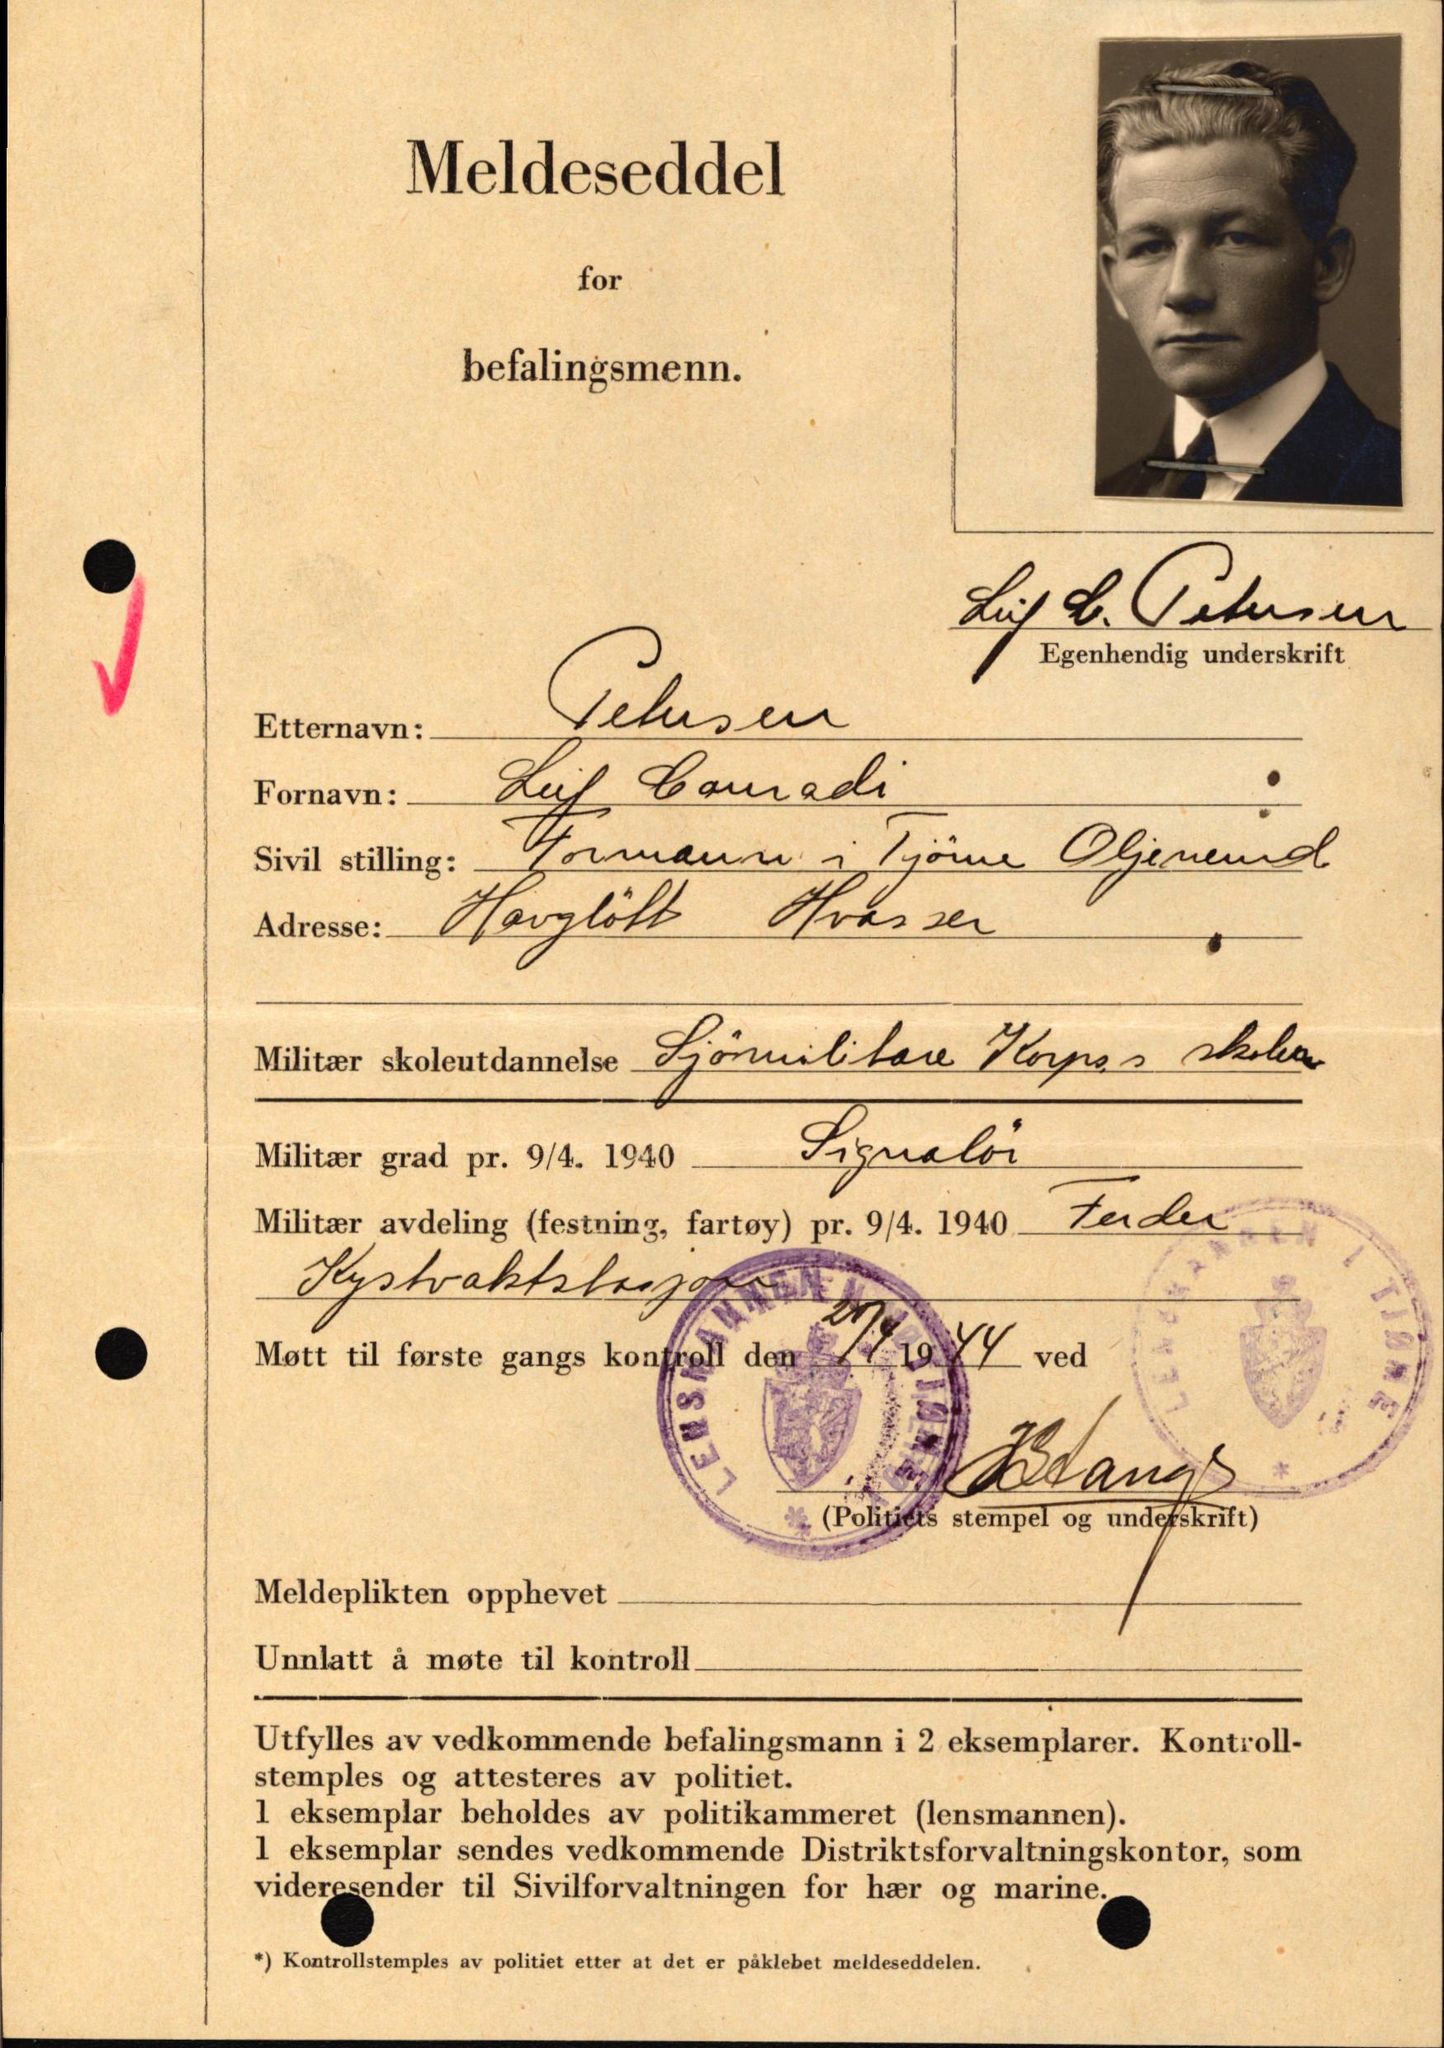 Meldeseddel
for
befalingsmenn.
Leif C. Petersen
Egenhendig underskrift
Etternavn: Petersen
Fornavn: Leif Conradi
Sivil stilling: Formann i Tjöme
Adresse: Havglött Hvasser
Militær skoleutdannelse Sjömilitære Korps.s skoler
Militær grad pr. 9/4. 1940 Signalör
Militær avdeling (festning, fartøy) pr. 9/4. 1940 Ferder
Kystvaktstasjon
Møtt til første gangs kontroll den 1944 ved
LENSMANNEN I TJØME
LENSMANNEN I TJØME
(Politiets stempel og underskrift)
Meldeplikten opphevet
Unnlatt å møte til kontroll
Utfylles av vedkommende befalingsmann i 2 eksemplarer. Kontroll-
stemples og attesteres av politiet.
1 eksemplar beholdes av politikammeret (lensmannen).
1 eksemplar sendes vedkommende Distriktsforvaltningskontor, som
videresender til Sivilforvaltningen for hær og marine.
*) Kontrollstemples av politiet etter at det er påklebet meldeseddelen.